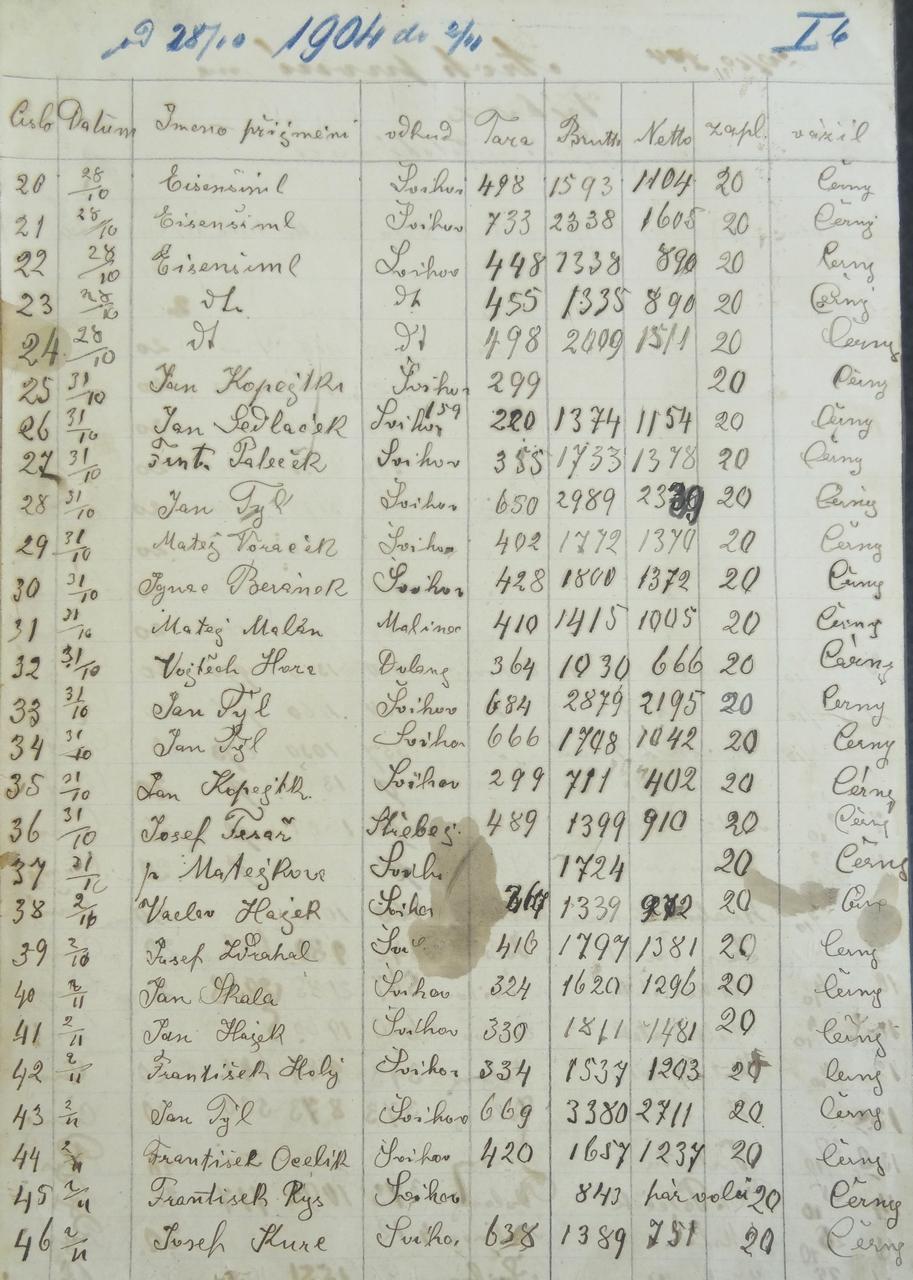 od 28/10 1904 do 2/11 I6
Čislo Datum Jmeno přijmeni odkud Tara Brutto Netto zapl. vážil
20 28/10 Eisenšiml Švihov 498 1593 1104 20 Černy
21 28/10 Eisenšiml Švihov 733 2338 1605 20 Černy
22 28/10 Eisenšiml Švihov 448 1338 890 20 Černy
23 28/10 dt. dt 455 1335 890 20 Černy
24 28/10 dt dt 498 2009 1511 20 Černy
25 31/10 Jan Kopejtko Švihov 299 20 Černy
26 31/10 Jan Sedlaček Švihov 159 220 1374 1154 20 Černy
27 31/10 Frnt. Paleček Švihov 355 1733 1378 20 Černy
28 31/10 Jan Tyl Švihov 650 2989 2339 20 Černy
29 31/10 Matej Voraček Švihov 402 1772 1370 20 Černy
30 31/10 Ignac Beránek Švihov 428 1800 1372 20 Černy
31 31/10 Matej Malán Malinec 410 1415 1005 20 Černy
32 31/10 Vojtěch Hora Dolany 364 1030 666 20 Černy
33 31/10 Jan Tyl Švihov 684 2879 2195 20 Černy
34 31/10 Jan Tyl Švihov 666 1708 1042 20 Černy
35 31/10 Jan Kopejtk. Švihov 299 711 402 20 Černy
36 31/10 Josef Tesař 489 1399 910 20 Černy
37 31/10 p Matejkova Švih. 1724 20 Černy
38 2/10 Vaclav Hajek Švihov 1339 20
39 2/10 Josef Zdrahal 416 1797 1381 20 Černy
40 2/11 Jan Skala Švihov 324 1620 1296 20 Černy
41 2/11 Jan Hajek Švihov 330 1811 1481 20 Černy
42 2/11 František Holý Švihov 334 1537 1203 20 Černy
43 2/11 Jan Tyl Švihov 669 3380 2711 20 Černy
44 2/11 František Ocelik Švihov 420 1657 1237 20 Černy
45 2/11 František Rys Švihov 843 pár volů 20 Černy
46 2/11 Josef Kure Švihov 638 1389 751 20 Černy